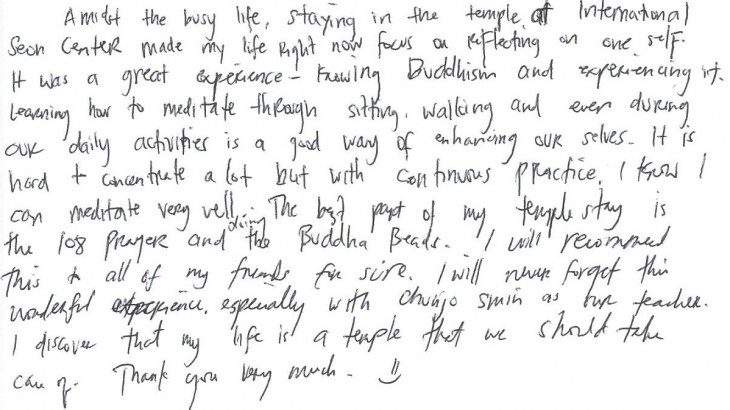 Amidst the busy life, staying in the temple at International
Seon Center made my life right now focus on reflecting on one self.
It was a great experience - knowing Buddhism and experiencing it.
Learning how to meditate through sitting, walking and even during
our daily activities is a good way of enhancing our selves. It is
hard to concentrate a lot but with continuous practice, I know I
can meditate very well. The best part of my temple stay is
the 108 prayer and doing the Buddha Beads. I will recommend
this to all of my friends for sure. I will never forget this
wonderful experience, especially with Chunjo Smin as our teacher.
I discover that my life is a temple that we should take
care of. Thank you very much. :)